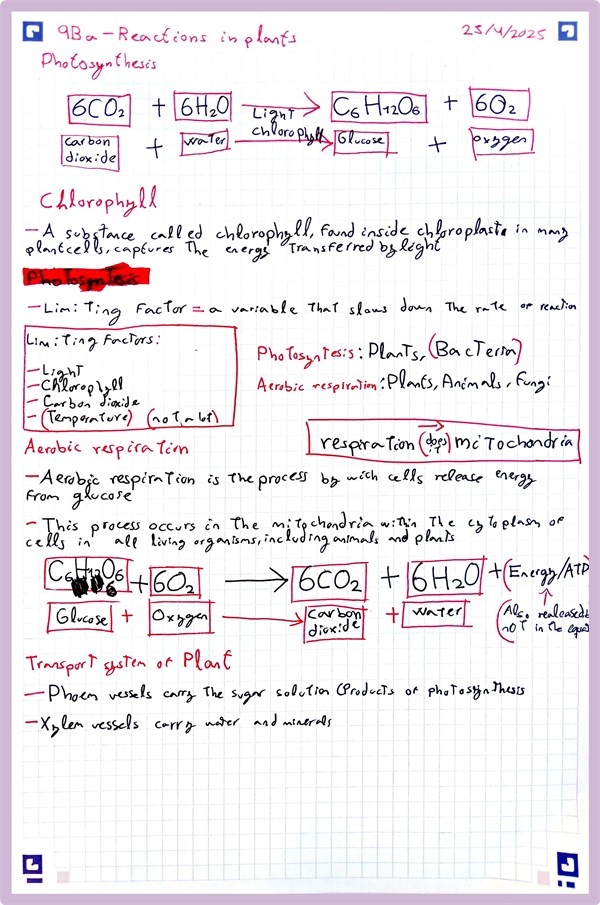 9Ba - Reactions in plants 25/4/2025
Photosynthesis
6CO2 + 6H2O Light chlorophyll → C6H12O6 + 6O2
Carbon dioxide + Water → Glucose + oxygen
Chlorophyll
- A substance called chlorophyll, found inside chloroplasts in many
plant cells, captures the energy transferred by light
Photosyntesis
- Limiting factor = a variable that slows down the rate of reaction
Limiting factors:
- Light
- Chlorophyll
- Carbon dioxide
- (Temperature) (not a lot)
Photosyntesis: Plants, (Bacteria)
Aerobic respiration: Plants, Animals, Fungi
respiration (does it) → mitochondria
Aerobic respiration
- Aerobic respiration is the process by wich cells release energy
from glucose
- This process occurs in the mitochondria within the cytoplasm of
cells in all living organisms, including animals and plants
C6H12O6 + 6O2 → 6CO2 + 6H2O + (Energy/ATP)
6
Glucose + Oxygen → Carbon dioxide + Water
(Also realeased
not in the
Transport system of Plant
- Phoem vessels carry the sugar solution (Products of photosynthesis
- Xylem vessels carry water and minerals